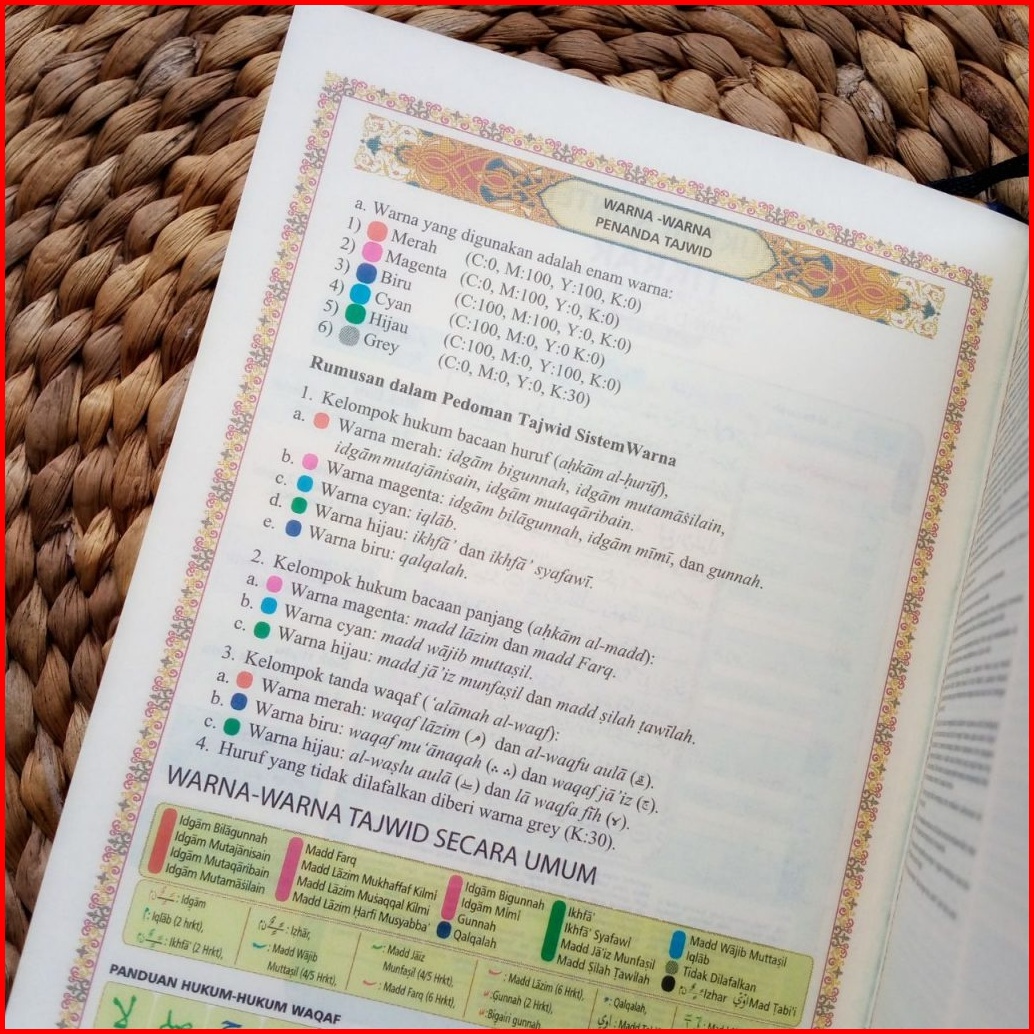 WARNA -WARNA
PENANDA TAJWID
a. Warna yang digunakan adalah enam warna:
1) Merah (C:0, M:100, Y:100, K:0)
2) Magenta (C:0, M:100, Y:0, K:0)
3) Biru (C:100, M:100, Y:0, K:0)
4) Cyan (C:100, M:0, Y:0 K:0)
5) Hijau (C:100, M:0, Y:100, K:0)
6) Grey (C:0, M:0, Y:0, K:30)
Rumusan dalam Pedoman Tajwid SistemWarna
1. Kelompok hukum bacaan huruf (aḥkām al-ḥurūf),
a. Warna merah: idgām bigunnah, idgām mutamāṡilain,
idgām mutajānisain, idgām mutaqāribain.
b. Warna magenta: idgām bilāgunnah, idgām mīmī, dan gunnah.
c. Warna cyan: iqlāb.
d. Warna hijau: ikhfā' dan ikhfā' syafawī.
e. Warna biru: qalqalah.
2. Kelompok hukum bacaan panjang (aḥkām al-madd):
a. Warna magenta: madd lāzim dan madd Farq.
b. Warna cyan: madd wājib muttaṣil.
c. Warna hijau: madd jā'iz munfaṣil dan madd ṣilah ṭawīlah.
3. Kelompok tanda waqaf ('alāmah al-waqf):
a. Warna merah: waqaf lāzim (مـ) dan al-waqfu aulā (قلى).
b. Warna biru: waqaf mu'ānaqah (∴ ∴) dan waqaf jā'iz (ج).
c. Warna hijau: al-waṣlu aulā (صلى) dan lā waqfa fīh (لا).
4. Huruf yang tidak dilafalkan diberi warna grey (K:30).
WARNA-WARNA TAJWID SECARA UMUM
Idgām Bilāgunnah
Idgām Mutajānisain
Idgām Mutaqāribain
Idgām Mutamāsilain
Madd Farq
Madd Lāzim Mukhaffaf Kilmi
Madd Lāzim Musaqqal Kilmi
Madd Lāzim Ḥarfi Musyabba'
Idgām Bigunnah
Idgām Mīmī
Gunnah
Qalqalah
Ikhfā'
Ikhfā' Syafawī
Madd Jā'iz Munfaṣil
Madd Ṣilah Tawīlah
Madd Wājib Muttaṣil
Iqlāb
Tidak Dilafalkan
Izhar Mad Tabi'i
: Idgām
: Iqlāb (2 hrkt),
: Ikhfā' (2 Hrkt),
: Izhār,
: Madd Wājib
Muttaṣil (4/5 Hrkt),
: Madd Jāiz
Munfaṣil (4/5 Hrkt),
: Madd Farq (6 Hrkt),
: Madd Lāzim (6 Hrkt),
:Gunnah (2 Hrkt),
:Bigairi gunnah
: Qalqalah,
PANDUAN HUKUM-HUKUM WAQAF